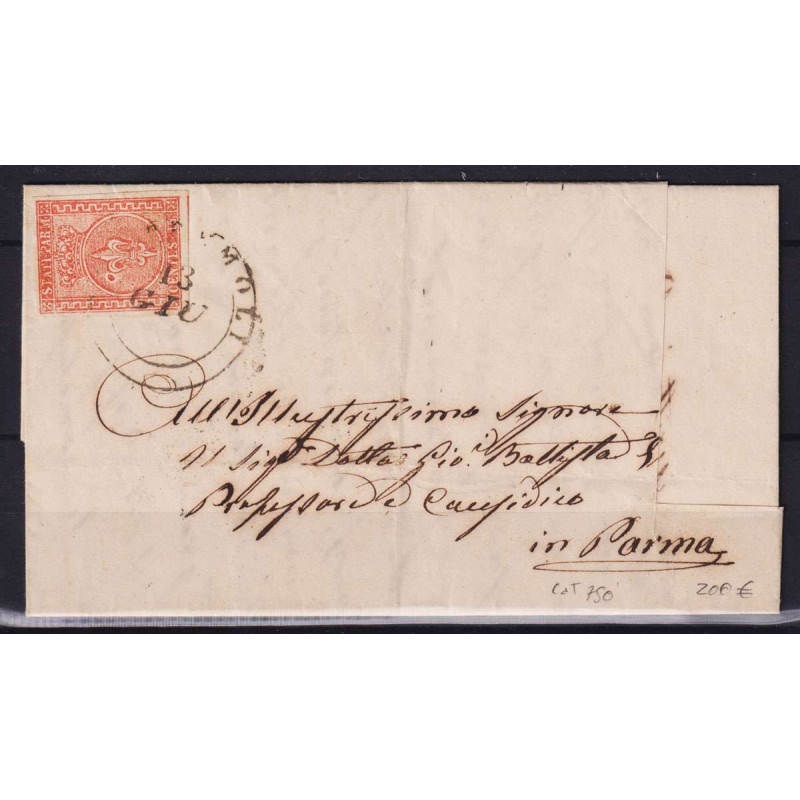 STATI PARM.
CENTES
13
GIU
All'Illustrissimo Signore
Il Sigr Dottor Gio. Battista
Professore e Causidico
in Parma
CAT 750
200 €